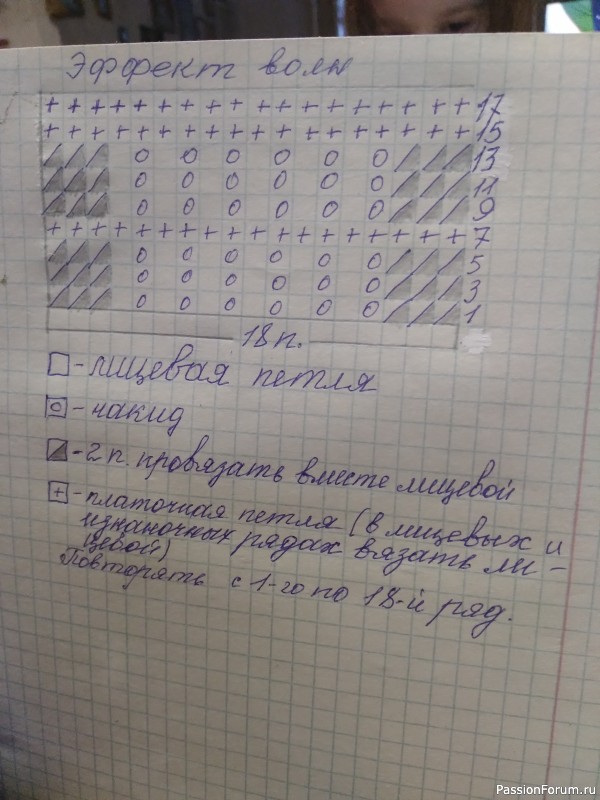 Эффект волн
+ + + + + + + + + + + + + + + + + + 17
+ + + + + + + + + + + + + + + + + + 15
/ / / o o o o o o / / / 13
/ / / o o o o o o / / / 11
/ / / o o o o o o / / / 9
+ + + + + + + + + + + + + + + + + + 7
/ / / o o o o o o / / / 5
/ / / o o o o o o / / / 3
/ / / o o o o o o / / / 1
18 п.
- лицевая петля
o - накид
- 2 п. провязать вместе лицевой
+ - платочная петля (в лицевых и
изнаночных рядах вязать ли-
цевой)
Повторять с 1-го по 18-й ряд.
PassionForum.ru